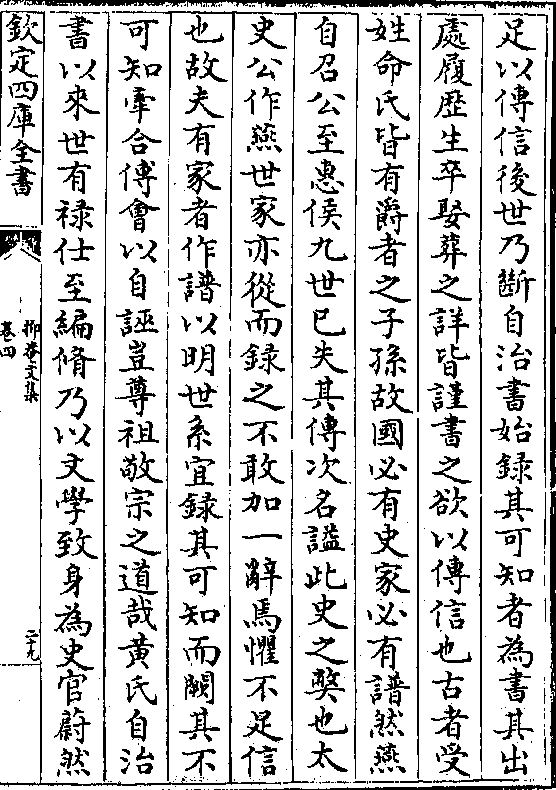 足以傳信後世乃斷自治書始録其可知者為書其出
處履歴生卒娶葬之詳皆謹書之欲以傳信也古者受
姓命氏皆有爵者之子孫故國必有史家必有譜然燕
自召公至惠侯九世已失其傳次名諡此史之獘也太
史公作燕世家亦從而録之不敢加一辭焉懼不足信
也故夫有家者作譜以明世系宜録其可知而闕其不
可知牽合傅會以自誣豈尊祖敬宗之道哉黄氏自治
書以來世有禄仕至編脩乃以文學致身為史官蔚然
欽定四庫全書
抑菴文集
卷四
二十九